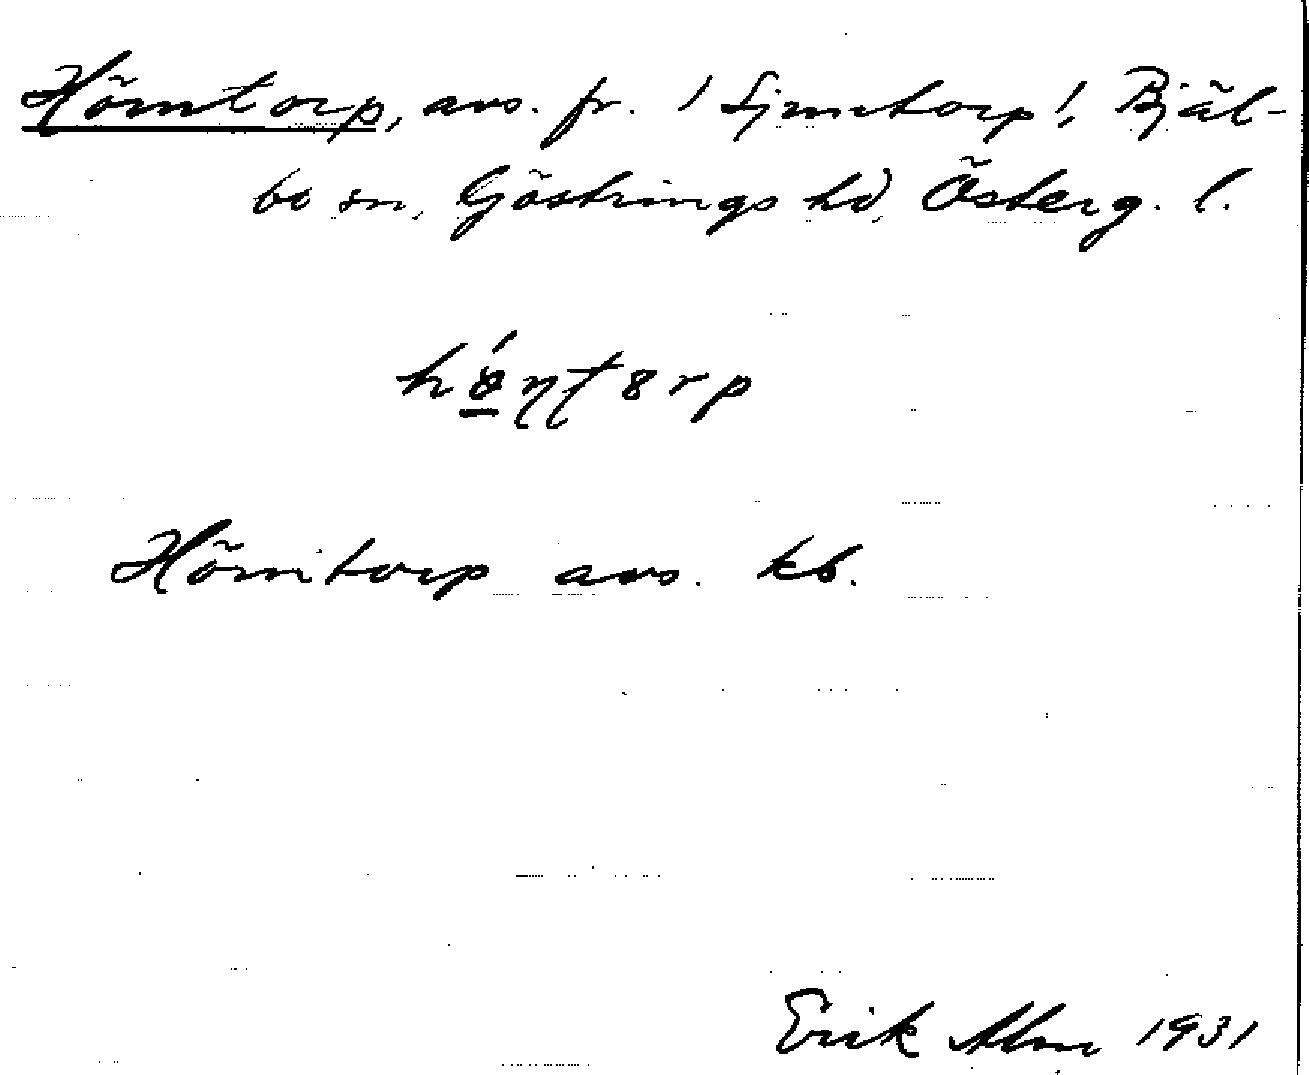 Hörntorp, avs. fr. 1 Ljuntorp 1, Bjäl-
bo sn, Göstrings hd, Österg. l.
Hörntorp avs. kb.
Erik Alm 1931